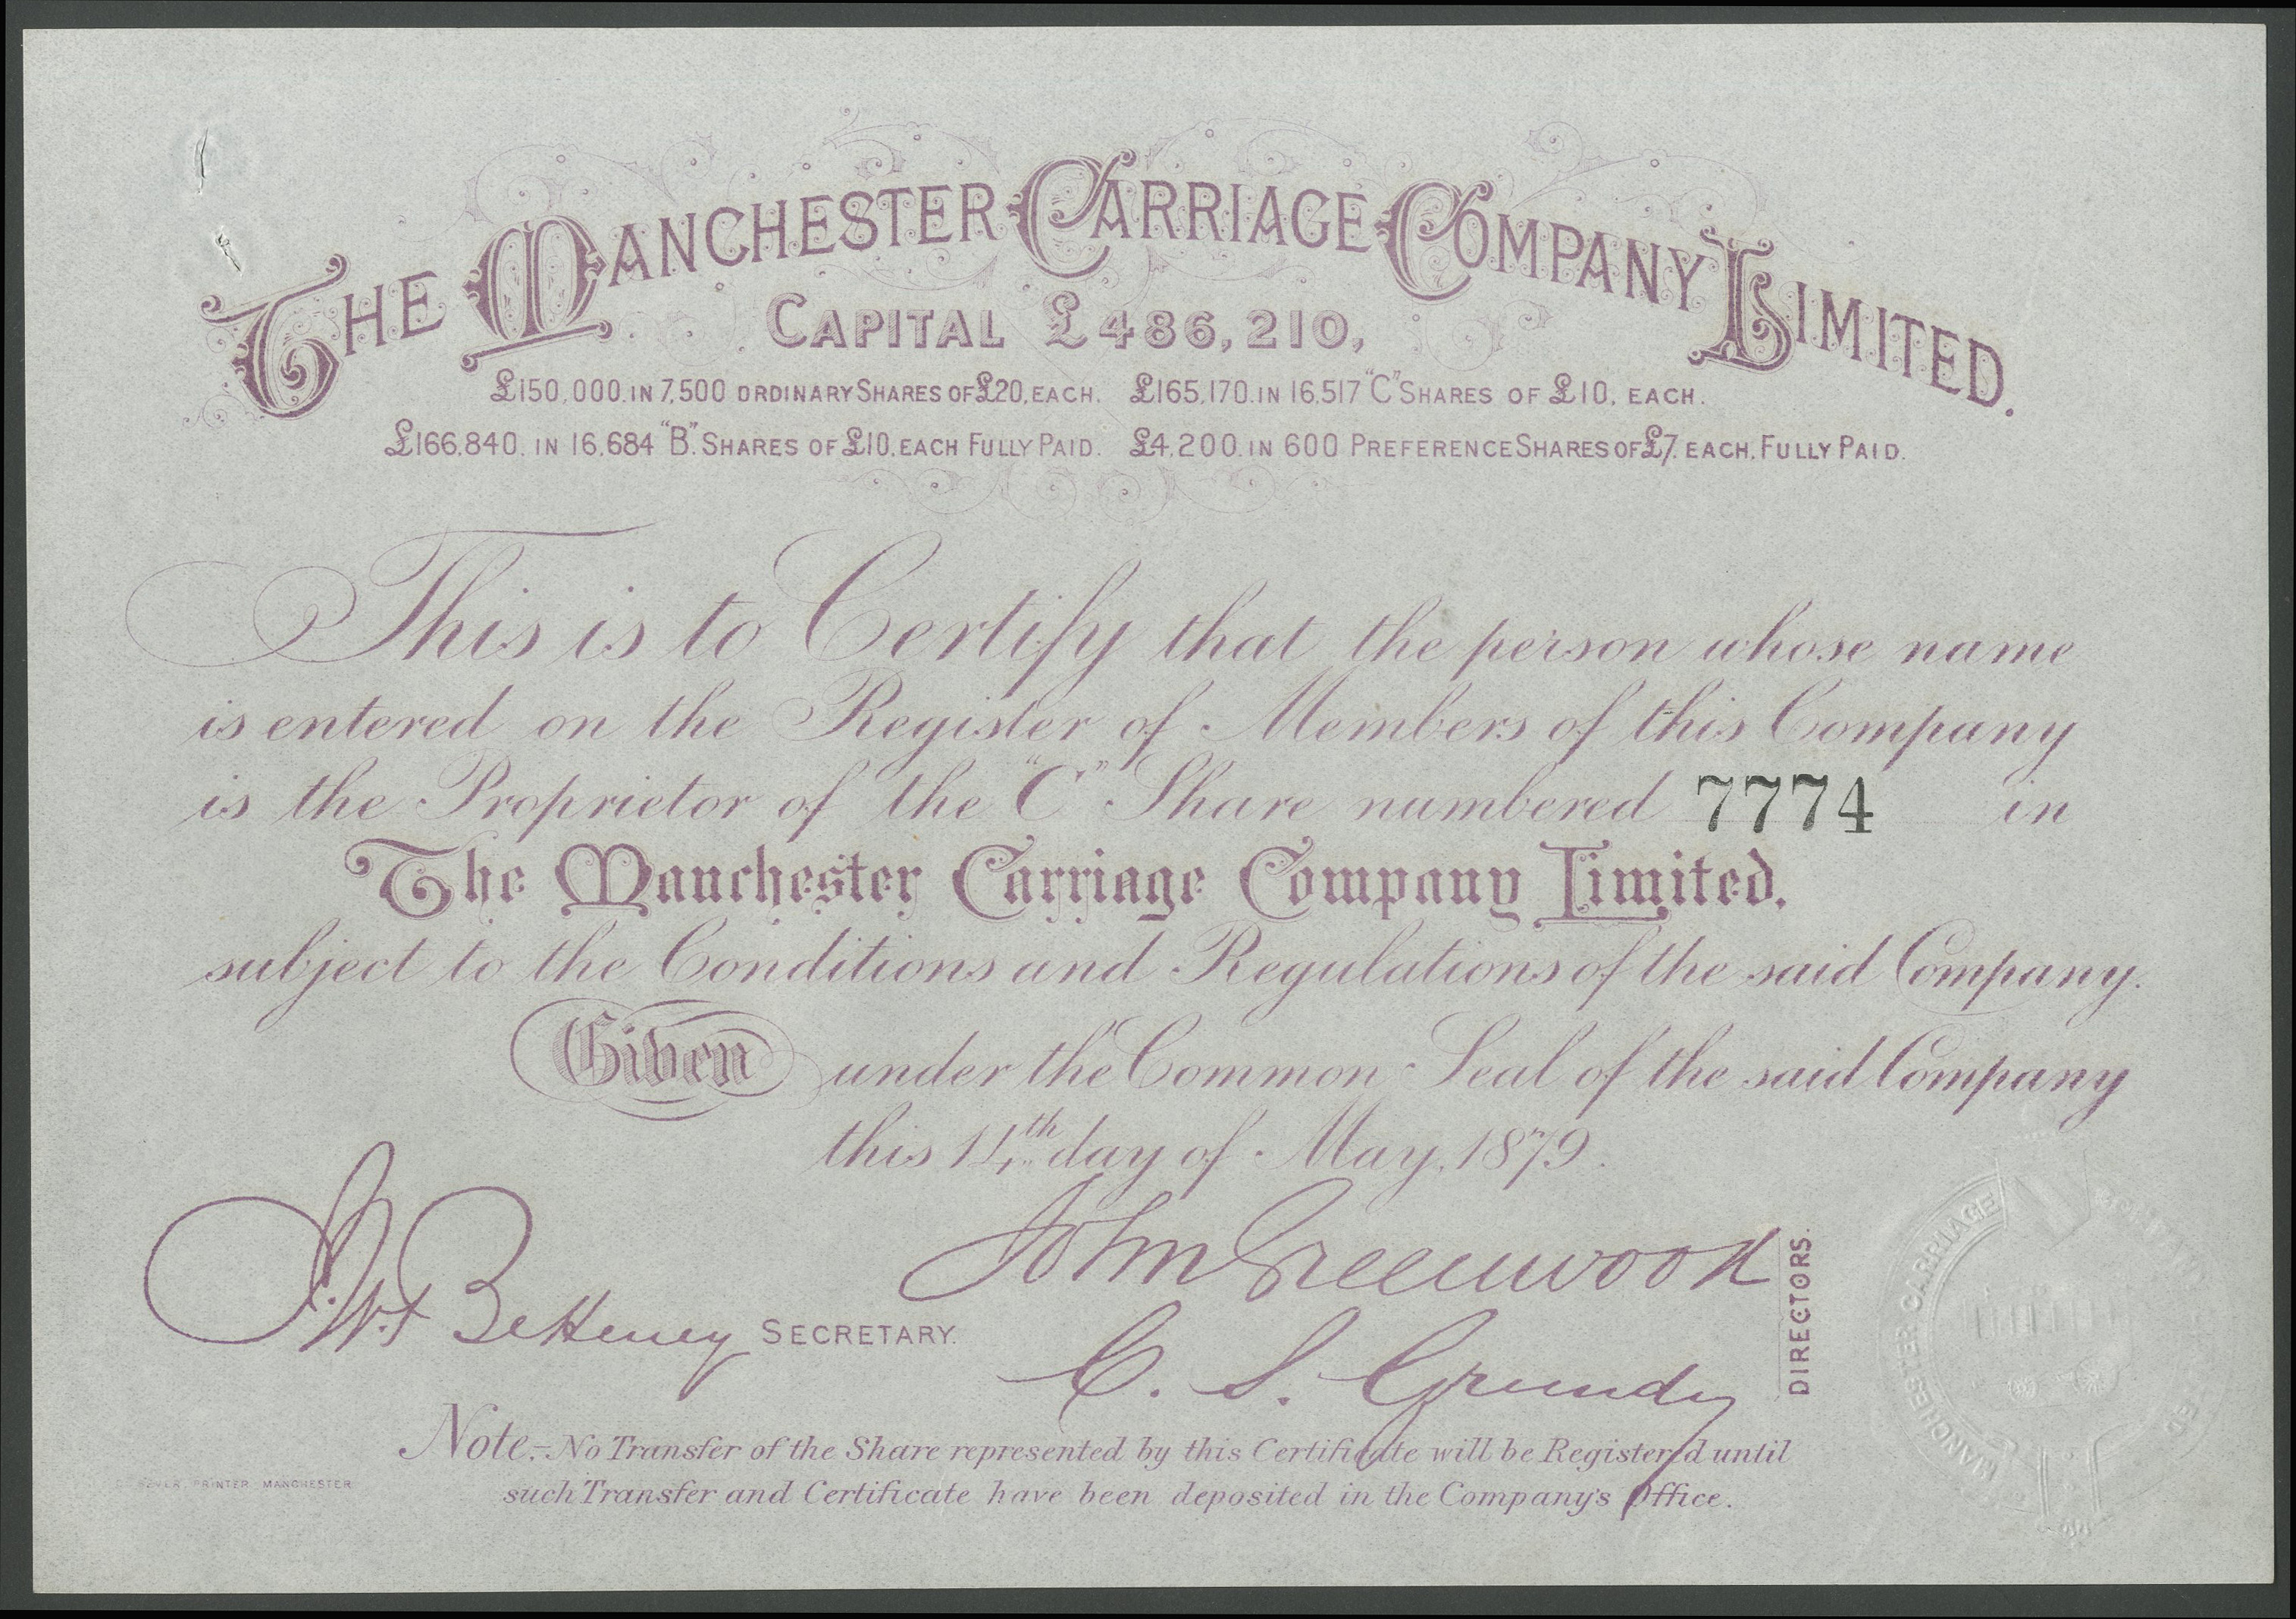 THE MANCHESTER CARRIAGE COMPANY LIMITED.
CAPITAL £486,210,
£150,000. IN 7,500 ORDINARY SHARES OF £20, EACH. £165,170. IN 16,517 "C" SHARES OF £10, EACH.
£166,840, IN 16,684 "B". SHARES OF £10, EACH FULLY PAID. £4,200. IN 600 PREFERENCE SHARES OF £7, EACH, FULLY PAID.
This is to Certify that the person whose name
is entered on the Register of Members of this Company
is the Proprietor of the "C" Share numbered 7774 in
The Manchester Carriage Company Limited.
subject to the Conditions and Regulations of the said Company.
Given under the Common Seal of the said Company
this 14th day of May, 1879.
John Greenwood
SECRETARY.
C. S. Grundy
DIRECTORS.
Note.- No Transfer of the Share represented by this Certificate will be Registered until
such Transfer and Certificate have been deposited in the Company's Office.
PRINTER MANCHESTER
MANCHESTER CARRIAGE COMPANY LIMITED